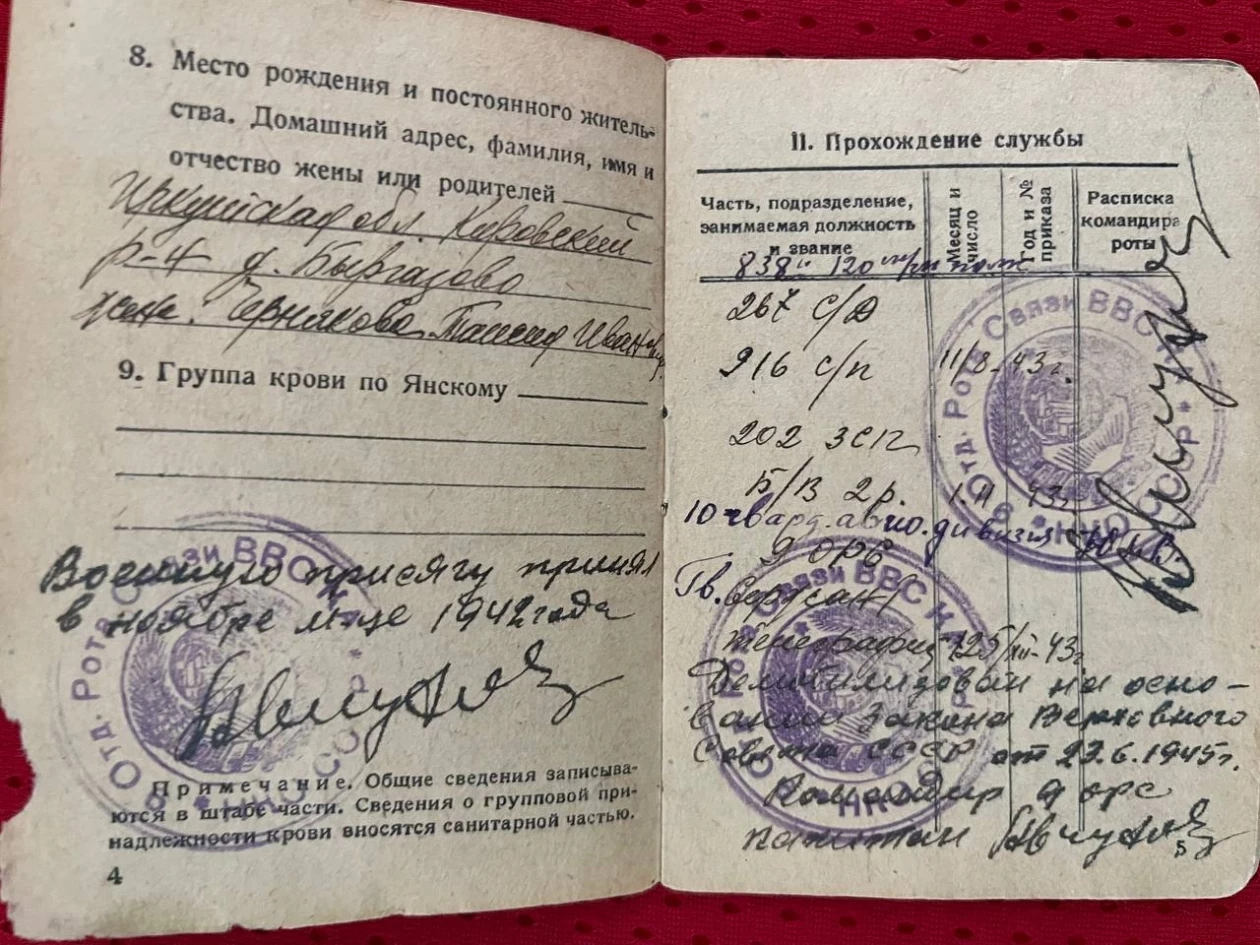 8. Место рождения и постоянного житель-
ства. Домашний адрес, фамилия, имя и
отчество жены или родителей
Иркутская обл. Кировский
р-н д.
жена. Чернякова Таисия Ивановна
9. Группа крови по Янскому
Военную присягу принял
в ноябре м-це 1942 года
Примечание. Общие сведения записыва-
ются в штабе части. Сведения о групповой при-
надлежности крови вносятся санитарной частью.
4
II. Прохождение службы
Часть, подразделение,
занимаемая должность
и звание
Месяц и
число
Год и №
приказа
Расписка
командира
роты
838 120 полк
267 С/Д
916 с/п 11/8-43г.
202 ЗСП
В/В 2р. 1.11 43г
10 гвард. авио. дивизия
9 ОРС
Гв. Сержант
телеграфист 25/XII-43г
Демобилизован на осно-
вании Закона Верховного
Совета СССР от 23.6.1945г.
Командир 9 орс
капитан
5
9 Отд. Рота Связи ВВС КА * НКО СССР *
9 Отд. Рота Связи ВВС КА * НКО СССР *
9 Отд. Рота Связи ВВС КА * НКО СССР *